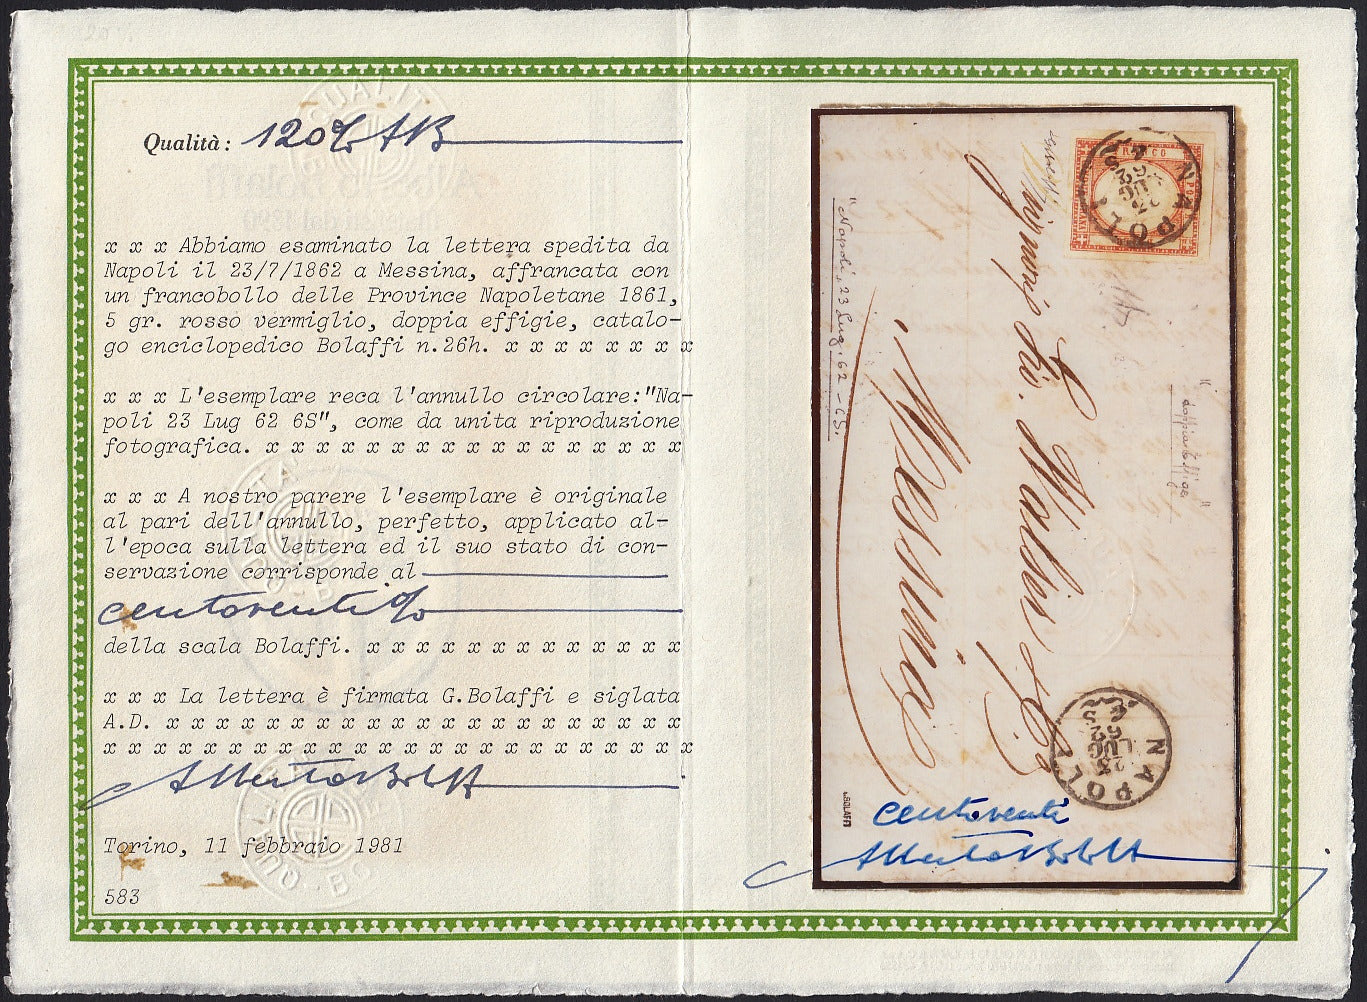 Qualità: 120% AB
x x x Abbiamo esaminato la lettera spedita da
Napoli il 23/7/1862 a Messina, affrancata con
un francobollo delle Province Napoletane 1861,
5 gr. rosso vermiglio, doppia effigie, catalo-
go enciclopedico Bolaffi n.26h. x x x x x x x x
x x x L'esemplare reca l'annullo circolare:"Na-
poli 23 Lug 62 6S", come da unita riproduzione
fotografica. x x x x x x x x x x x x x x x x x
x x x A nostro parere l'esemplare è originale
al pari dell'annullo, perfetto, applicato al-
l'epoca sulla lettera ed il suo stato di con-
servazione corrisponde al
centoventi %
della scala Bolaffi. x x x x x x x x x x x x x
x x x La lettera è firmata G.Bolaffi e siglata
A.D. x x x x x x x x x x x x x x x x x x x x x
x x x x x x x x x x x x x x x x x x x x x x x x
Alberto Bolaffi
Torino, 11 febbraio 1981
583
"Napoli, 23 Lug. 62 - 6S."
Messina
"doppia effige"
NAPOLI
LUG
62
NAPOLI
23
LUG
62
BOLAFFI
centoventi
Alberto Bolaffi